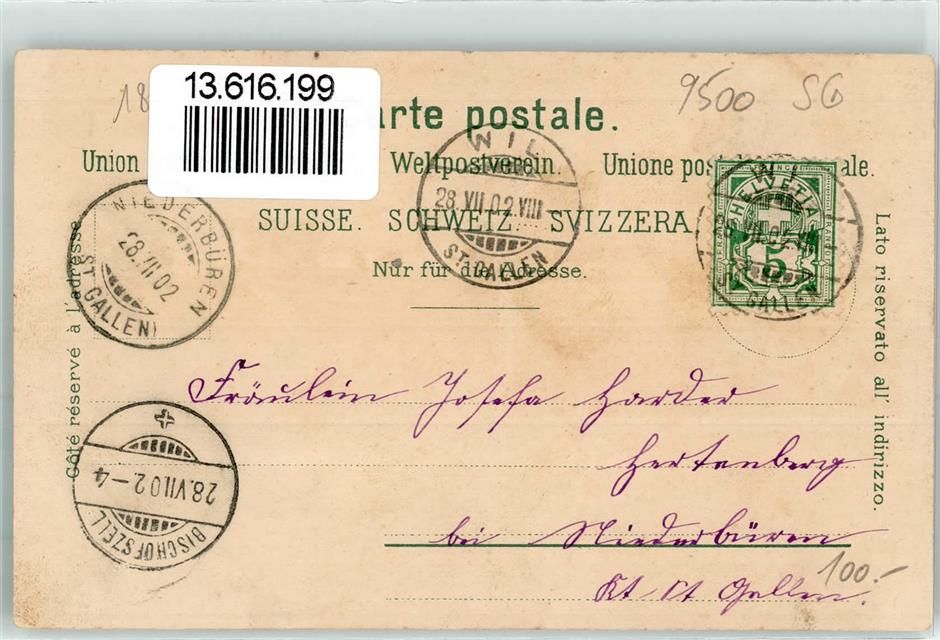 13.616.199
18
9500 SG
arte postale.
Union Weltpostverein. Unione pos ale.
SUISSE. SCHWEIZ. SVIZZERA
Nur für die Adresse.
Côté réservé à l'adresse.
Lato riservato all' indirizzo.
NIEDERBÜREN
28.VII.02
(ST. GALLEN)
WIL
28.VII.02.VIII
ST. GALLEN
WIL
ST. GALLEN
HELVETIA
5
BISCHOFSZELL
28.VII.02.–4
Fräulein Josefa Harder
Hertenberg
bei Niederbüren
Kt St Gallen.
100.-